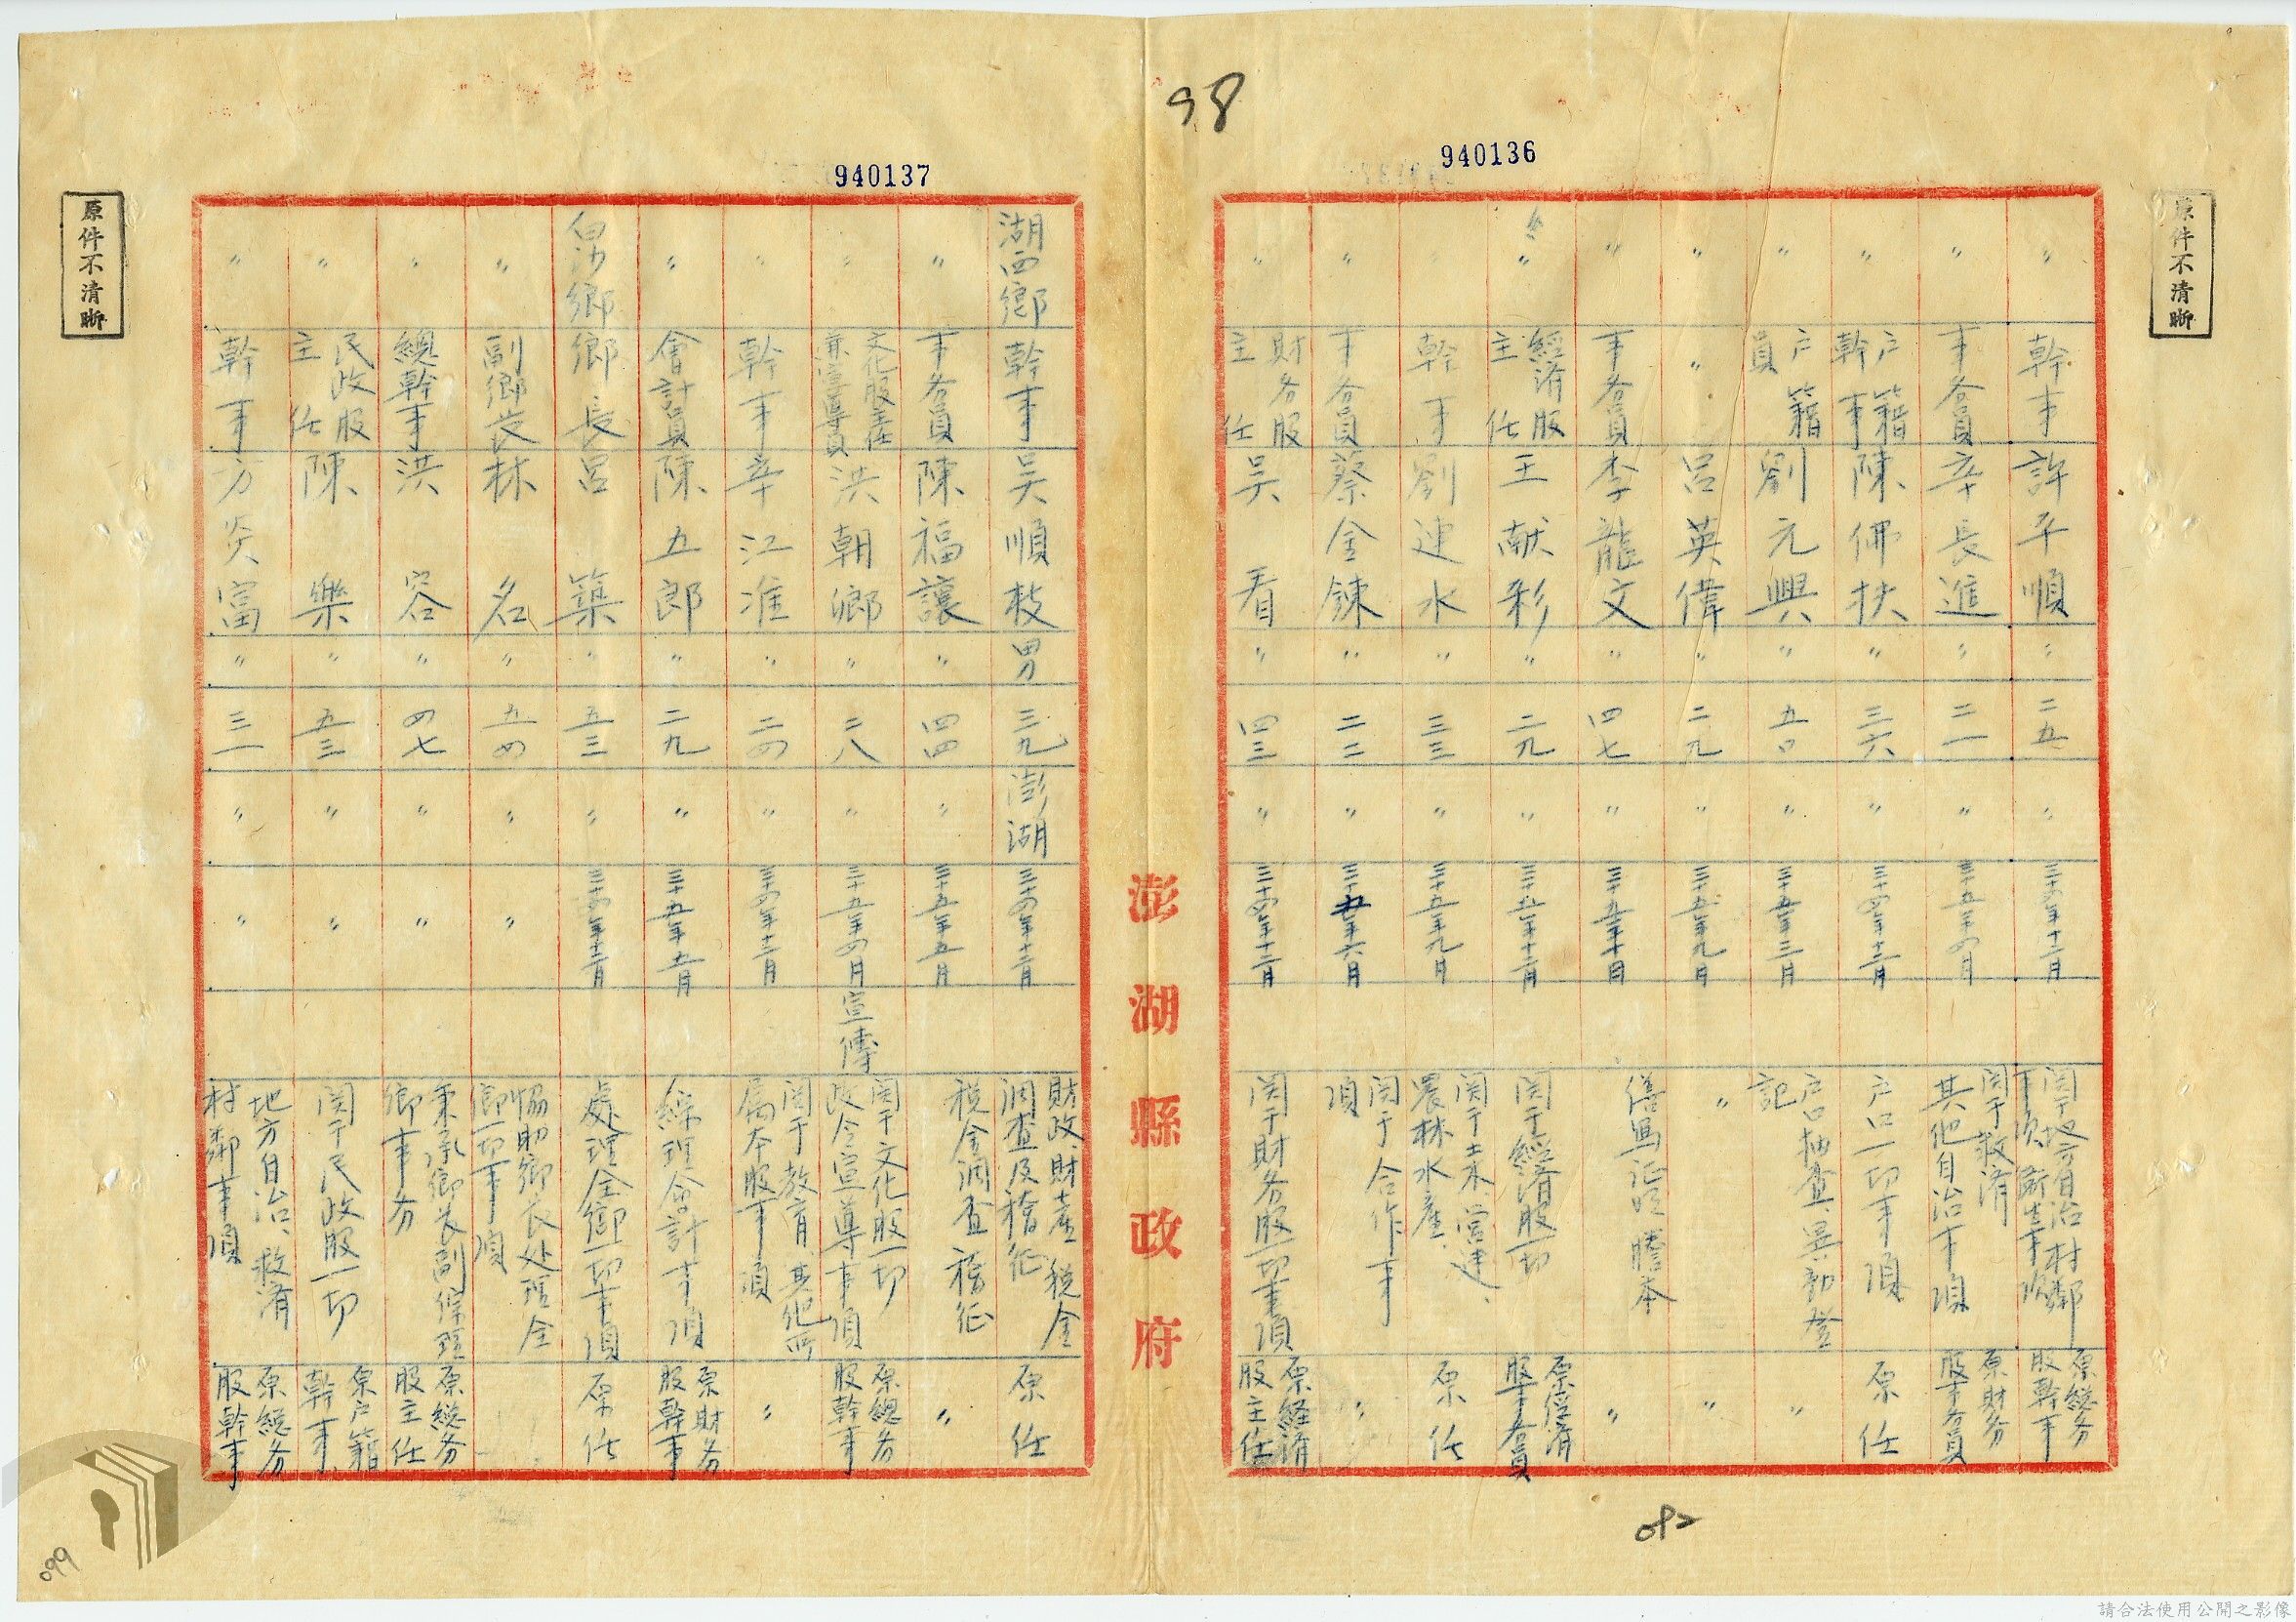 98
940136
原件不清晰
〃 幹事 許平順 〃 二五 〃 三十四年十二月 関于地方自治村鄰事項、衛生事項 原總务股幹事
〃 事务員 辛長進 〃 二一 〃 三十五年四月 関于救済其他自治事項 原財务股事务員
〃 戸籍幹事 陳佛扶 〃 三六 〃 三十四年十二月 戸口一切事項 原任
〃 戸籍員 劉元興 〃 五〇 〃 三十五年三月 戸口抽查、異動登記 〃
〃 〃 呂英偉 〃 二九 〃 三十五年九月 〃 〃
〃 事务員 李龍文 〃 四七 〃 三十五年十月 繕寫証明謄本 〃
〃 經済股主任 王献彩 〃 二九 〃 三十五年十二月 関于經済股一切 原經済股事务員
〃 幹事 劉連水 〃 三三 〃 三十五年九月 関于土木、営建、農林水產、 原任
〃 事务員 蔡金鍊 〃 二二 〃 三十五年六月 関于合作事項 〃
〃 財务股主任 吴看 〃 四三 〃 三十四年十二月 関于財务股一切事項 原経済股主任
082
澎湖縣政府
940137
湖西鄉 幹事 吴順枝 男 三九 澎湖 三十四年十二月 財政、財產税金調查及稽征 原任
〃 事务員 陳福讓 〃 四四 〃 三十五年五月 税金調查稽征 〃
〃 文化股主任兼宣導員 洪朝鄉 〃 二八 〃 三十五年四月 宣傳 関于文化股一切政令宣導事項 原總务股幹事
〃 幹事 辛江淮 〃 二四 〃 三十四年十二月 関于教育、其他所属本股事項 〃
〃 會計員 陳五郎 〃 二九 〃 三十五年五月 綜理會計事項 原財务股幹事
白沙鄉 鄉長 呂築 〃 五三 〃 三十四年十二月 處理全鄉一切事項 原任
〃 副鄉長 林名 〃 五四 〃 〃 協助鄉長处理全鄉一切事項
〃 總幹事 洪容 〃 四七 〃 〃 秉承鄉長副條理鄉事务 原總务股主任
〃 民政股主任 陳樂 〃 五三 〃 〃 関于民政股一切 原戸籍幹事
〃 幹事 方炎富 〃 三一 〃 〃 地方自治、救済村鄰事項 原總务股幹事
原件不清晰
099
請合法使用公開之影像